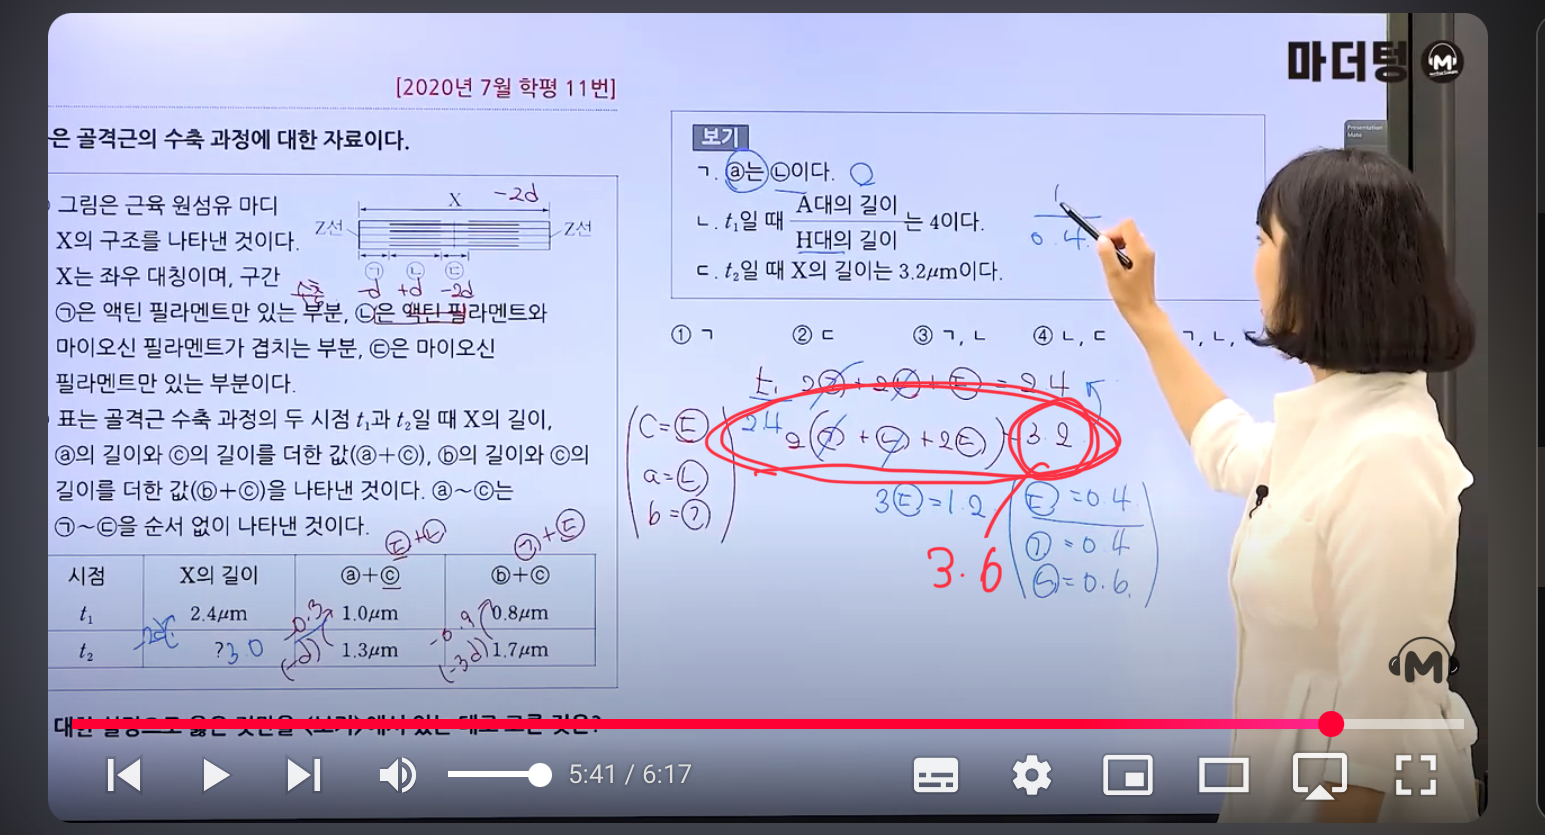 마더텅
[2020년 7월 학평 11번]
은 골격근의 수축 과정에 대한 자료이다.
그림은 근육 원섬유 마디
X의 구조를 나타낸 것이다.
X는 좌우 대칭이며, 구간
X -2d
Z선 Z선
㉠ ㉡ ㉢
-d +d -2d
㉠은 액틴 필라멘트만 있는 부분, ㉡은 액틴 필라멘트와
마이오신 필라멘트가 겹치는 부분, ㉢은 마이오신
필라멘트만 있는 부분이다.
표는 골격근 수축 과정의 두 시점 t₁과 t₂일 때 X의 길이,
ⓐ의 길이와 ⓒ의 길이를 더한 값(ⓐ+ⓒ), ⓑ의 길이와 ⓒ의
길이를 더한 값(ⓑ+ⓒ)을 나타낸 것이다. ⓐ~ⓒ는
㉠~㉢을 순서 없이 나타낸 것이다.
㉢+㉡ ㉠+㉢
시점 X의 길이 ⓐ+ⓒ ⓑ+ⓒ
t₁ 2.4μm -0.3 1.0μm -0.9 0.8μm
t₂ -2d ?3.0 (-d) 1.3μm (-3d) 1.7μm
대한 설명으로 옳은 것만을 <보기>에서 있는 대로 고른 것은?
보기
ㄱ. ⓐ는 ㉡이다.
ㄴ. t₁일 때 A대의 길이 / H대의 길이 는 4이다.
ㄷ. t₂일 때 X의 길이는 3.2μm이다.
1
0.4
① ㄱ ② ㄷ ③ ㄱ, ㄴ ④ ㄴ, ㄷ ㄱ, ㄴ,
t₁ 2㉠+2㉡+㉢=2.4
2.4 2(㉠+㉡+2㉢) 3.2
C=㉢
a=㉡
b=㉠
3㉢=1.2
㉢=0.4
㉠=0.4
㉡=0.6
3.6
M
5:41 / 6:17